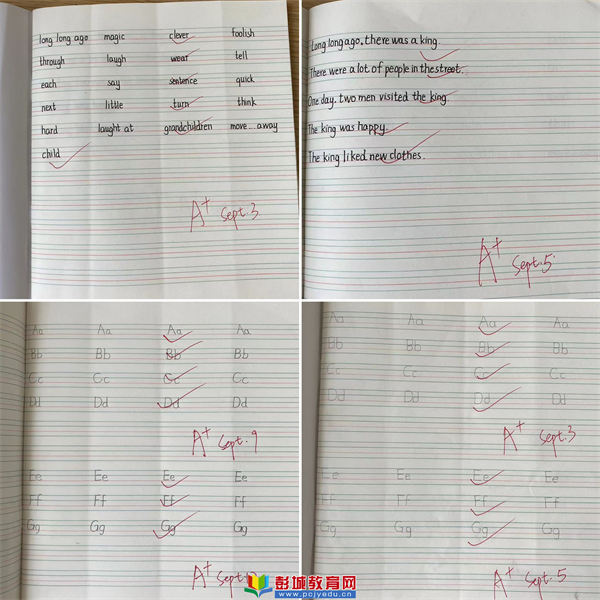 long long ago magic clever foolish
through laugh wear tell
each say sentence quick
next little turn think
hard laught at grandchildren move...away
child
A+ Sept.3
Long long ago, there was a king.
There were a lot of people in the street.
One day, two men visited the king.
The king was happy.
The king liked new clothes.
A+ Sept.5
Aa Aa Aa Aa
Bb Bb Bb Bb
Cc Cc Cc Cc
Dd Dd Dd Dd
A+ Sept.9
Ee Ee Ee Ee
Ff Ff Ff Ff
Gg Gg Gg Gg
A+ Sept.
Aa Aa Aa Aa
Bb Bb Bb Bb
Cc Cc Cc Cc
Dd Dd Dd Dd
A+ Sept.3
Ee Ee Ee Ee
Ff Ff Ff Ff
Gg Gg Gg Gg
A+ Sept.5
彭城教育网
www.pcjyedu.cn